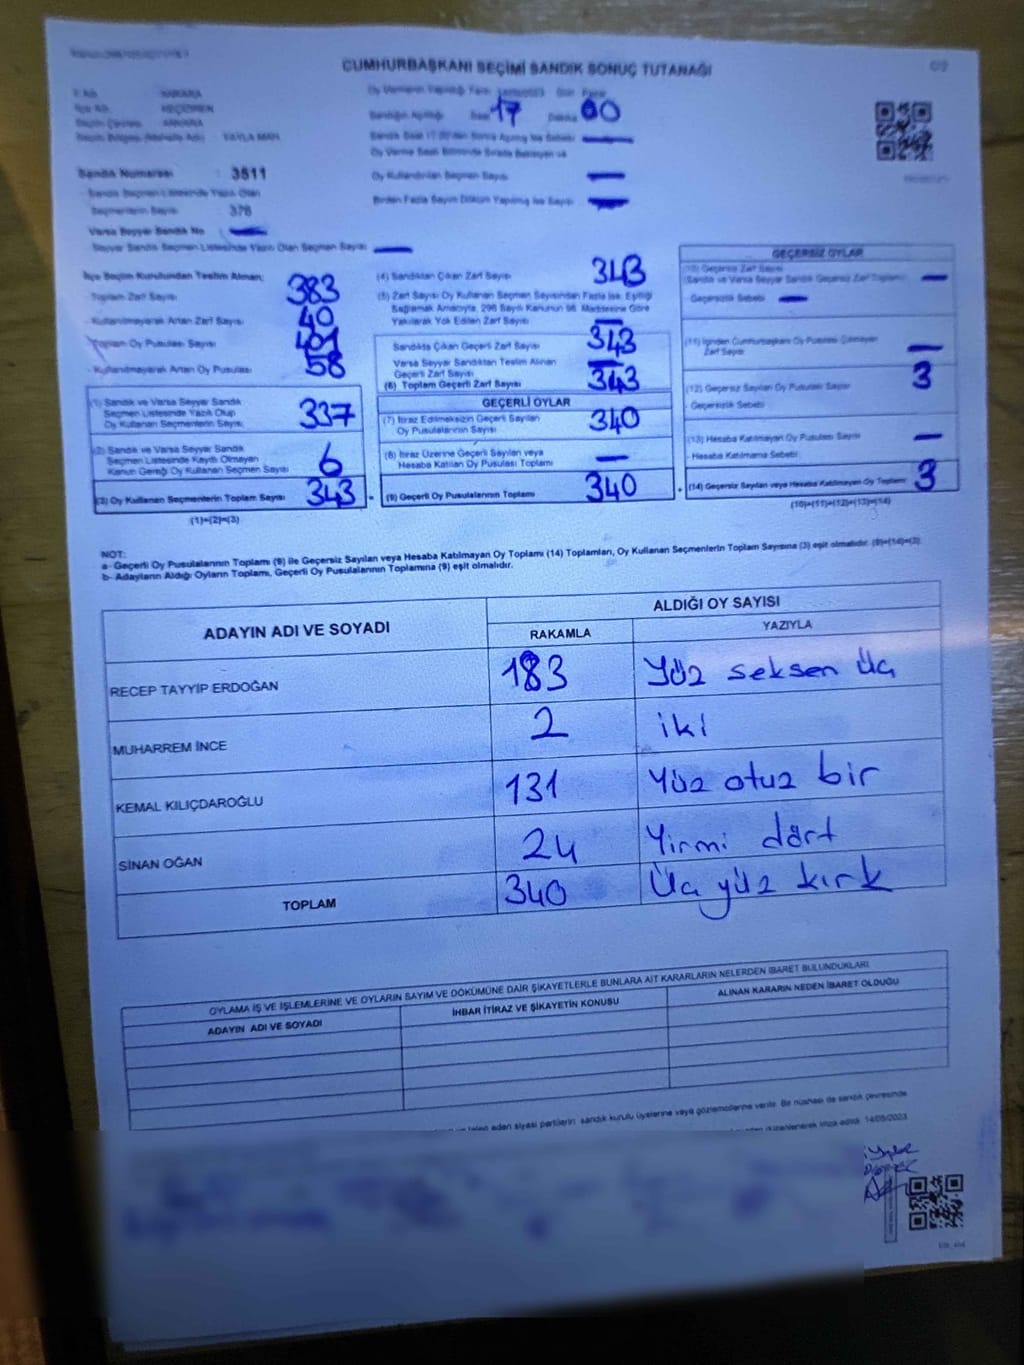 CUMHURBAŞKANI SEÇİMİ SANDIK SONUÇ TUTANAĞI
İl Adı ANKARA
İlçe Adı KEÇİÖREN
Seçim Çevresi ANKARA
YAYLA MAH.
Sandık Numarası : 3511
Sandık Seçmen Listesinde Yazılı Olan
Seçmenlerin Sayısı : 378
Varsa Seyyar Sandık No
Seyyar Sandık Seçmen Listesinde Yazılı Olan Seçmen Sayısı
Sandığın Açıldığı Saat 17 Dakika 00
Oy Kullandırılan Seçmen Sayısı
Birden Fazla Sayım Döküm Yapılmış İse Sayısı
İlçe Seçim Kurulundan Teslim Alınan;
Toplam Zarf Sayısı 383
- Kullanılmayarak Artan Zarf Sayısı 40
Toplam Oy Pusulası Sayısı 401
- Kullanılmayarak Artan Oy Pusulası 58
(1) Sandık ve Varsa Seyyar Sandık
Seçmen Listesinde Yazılı Olup
Oy Kullanan Seçmenlerin Sayısı 337
(2) Sandık ve Varsa Seyyar Sandık
Seçmen Listesinde Kayıtlı Olmayan
Kanun Gereği Oy Kullanan Seçmen Sayısı 6
(3) Oy Kullanan Seçmenlerin Toplam Sayısı 343
(1)+(2)=(3)
(4) Sandıktan Çıkan Zarf Sayısı 343
(5) Zarf Sayısı Oy Kullanan Seçmen Sayısından Fazla İse, Eşitliği
Sağlamak Amacıyla, 298 Sayılı Kanunun 98. Maddesine Göre
Yakılarak Yok Edilen Zarf Sayısı
Sandıkta Çıkan Geçerli Zarf Sayısı 343
Varsa Seyyar Sandıktan Teslim Alınan
Geçerli Zarf Sayısı
(6) Toplam Geçerli Zarf Sayısı 343
GEÇERLİ OYLAR
(7) İtiraz Edilmeksizin Geçerli Sayılan
Oy Pusulalarının Sayısı 340
(8) İtiraz Üzerine Geçerli Sayılan veya
Hesaba Katılan Oy Pusulası Toplamı
(9) Geçerli Oy Pusulalarının Toplamı 340
GEÇERSİZ OYLAR
(10) Geçersiz Zarf Sayısı
(Sandık ve Varsa Seyyar Sandık Geçersiz Zarf Toplamı)
- Geçersizlik Sebebi
(11) İçinden Cumhurbaşkanı Oy Pusulası Çıkmayan
Zarf Sayısı
(12) Geçersiz Sayılan Oy Pusulası Sayısı 3
- Geçersizlik Sebebi :
(13) Hesaba Katılmayan Oy Pusulası Sayısı
- Hesaba Katılmama Sebebi :
(14) Geçersiz Sayılan veya Hesaba Katılmayan Oy Toplamı 3
(10)+(11)+(12)+(13)=(14)
NOT:
a- Geçerli Oy Pusulalarının Toplamı (9) ile Geçersiz Sayılan veya Hesaba Katılmayan Oy Toplamı (14) Toplamları, Oy Kullanan Seçmenlerin Toplam Sayısına (3) eşit olmalıdır. (9)+(14)=(3)
b- Adayların Aldığı Oyların Toplamı, Geçerli Oy Pusulalarının Toplamına (9) eşit olmalıdır.
ADAYIN ADI VE SOYADI
ALDIĞI OY SAYISI
RAKAMLA YAZIYLA
RECEP TAYYİP ERDOĞAN 183 Yüz seksen üç
MUHARREM İNCE 2 iki
KEMAL KILIÇDAROĞLU 131 Yüz otuz bir
SİNAN OĞAN 24 Yirmi dört
TOPLAM 340 Üç yüz kırk
OYLAMA İŞ VE İŞLEMLERİNE VE OYLARIN SAYIM VE DÖKÜMÜNE DAİR ŞİKAYETLERLE BUNLARA AİT KARARLARIN NELERDEN İBARET BULUNDUKLARI
ADAYIN ADI VE SOYADI İHBAR İTİRAZ VE ŞİKAYETİN KONUSU ALINAN KARARIN NEDEN İBARET OLDUĞU
talep eden siyasi partilerin sandık kurulu üyelerine veya gözlemcilerine verilir. Bir nüshası da sandık çevresinde
düzenlenerek imza edildi. 14/05/2023